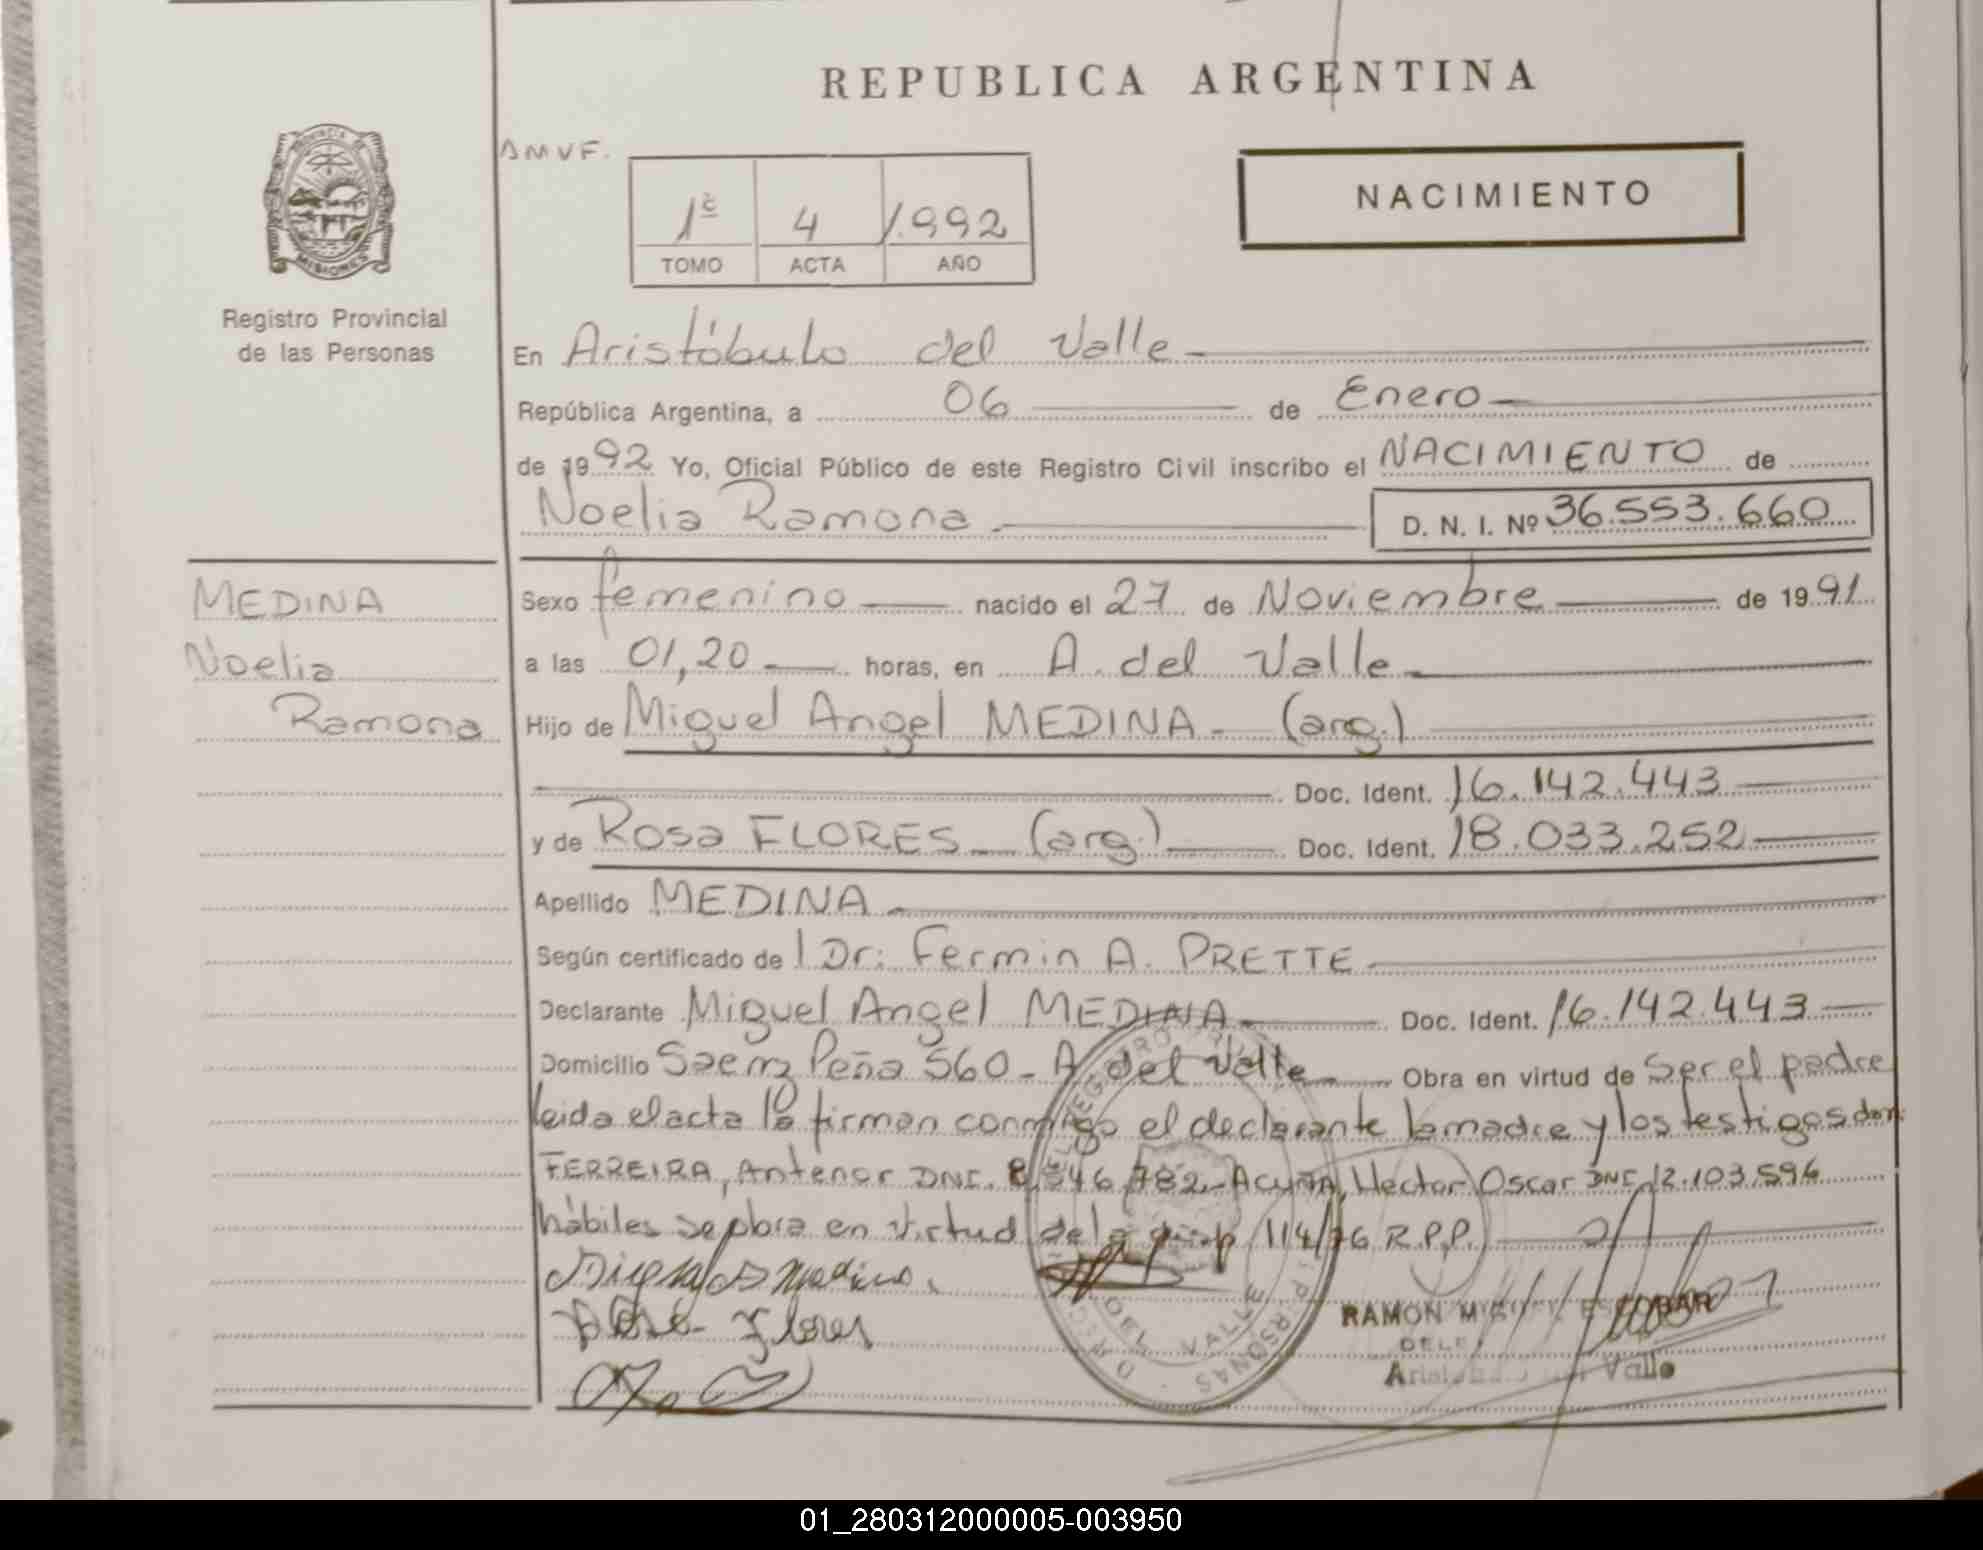 REPUBLICA ARGENTINA
AMVF.
NACIMIENTO
1º 4 1.992
TOMO ACTA AÑO
PROVINCIA DE
MISIONES
Registro Provincial
de las Personas
En Aristóbulo del Valle
República Argentina, a 06 de Enero
de 1992 Yo, Oficial Público de este Registro Civil inscribo el NACIMIENTO de
Noelia Ramona D. N. I. Nº 36.553.660
MEDINA
Noelia
Ramona
Sexo femenino nacido el 27 de Noviembre de 1991
a las 01,20 horas, en A. del Valle
Hijo de Miguel Angel MEDINA - (arg.)
Doc. Ident. 16.142.443
y de ROSA FLORES - (arg.) Doc. Ident. 18.033.252
Apellido MEDINA
Según certificado de l Dr: Fermin A. PRETTE
Declarante Miguel Angel MEDINA Doc. Ident. 16.142.443
Domicilio Saenz Peña 560 - A del Valle Obra en virtud de ser el padre
leida el acta la firman conmigo el declarante la madre y los testigos don:
FERREIRA, Antenor DNI. 8.546.782 - ACUÑA, Hector Oscar DNI 12.103.596
hábiles se obra en virtud de la 114/76 R.P.P.
Flores
RAMON MIGUEL ESCOBAR
DELE
Aristobulo del Valle
DEL VALLE
01_280312000005-003950